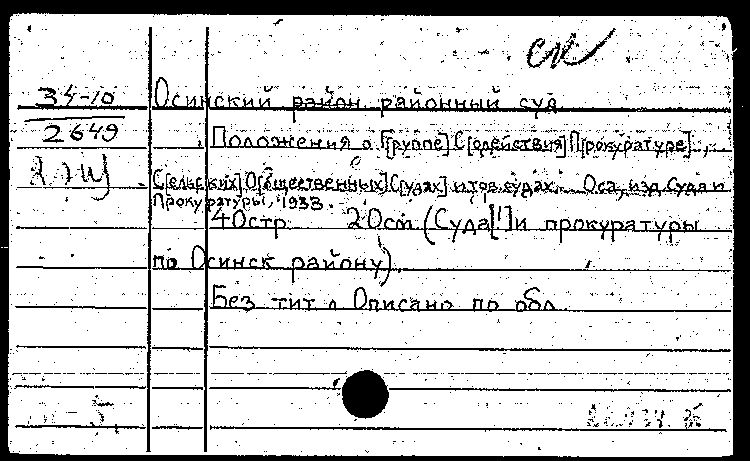 СК
34-10
2649
Осинский район районный суд
Положения о Г[руппе] С[одействия] П[рокуратуре],
С[ельских] О[бщественных] С[удах] и тов. судах. Оса, изд. Суда и
Прокуратуры, 1933.
40стр. 20см. (Суда[!] и прокуратуры
по Осинск району).
Без тит л Описано по обл
5.